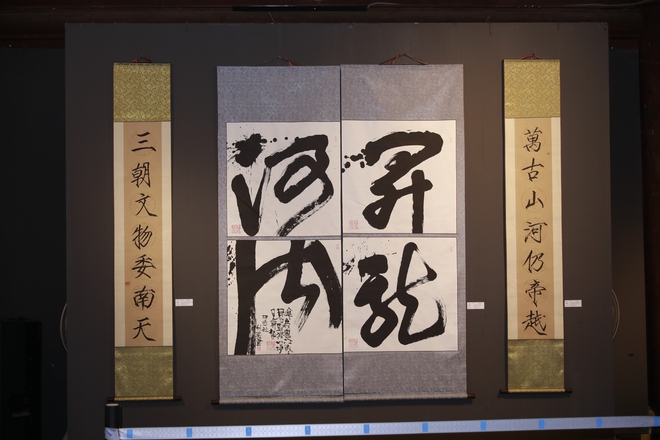 萬古山河仍帝越
昇龍
河内
三朝文物委南天